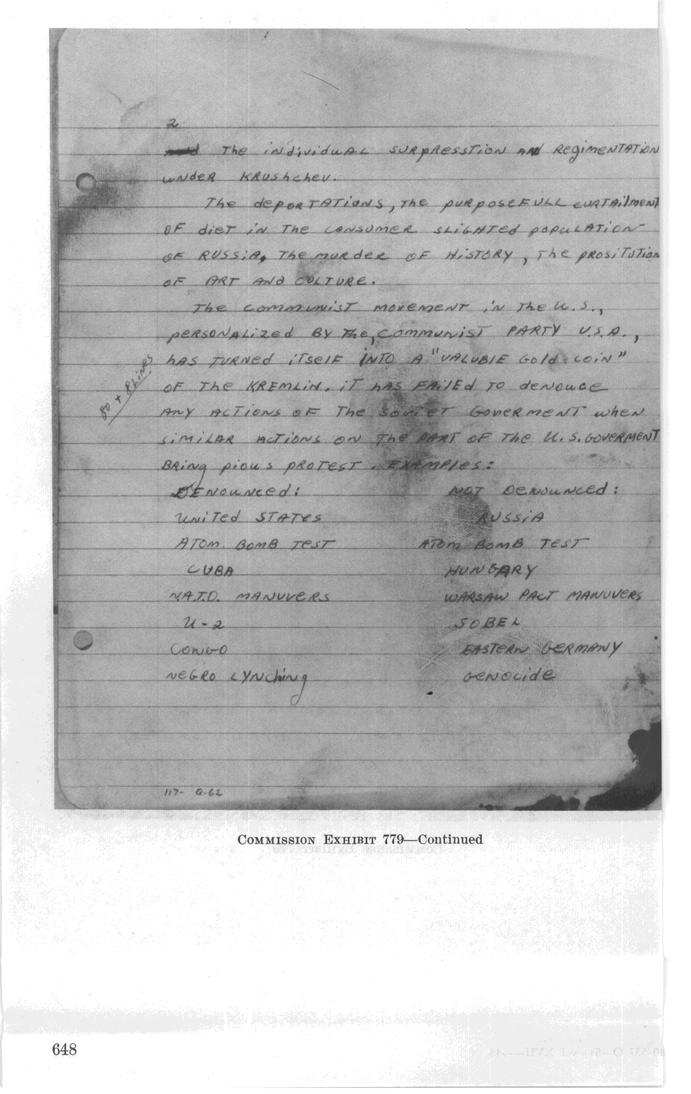 2
The individual surpresstion and regimentation
under Krushchev.
The deportations, the purposefull curtailment
of diet in the consumer slighted population
of Russia, the murder of history, the prositution
of art and culture.
The communist movement in the U.S.,
personalized by the, Communist Party U.S.A.,
has turned itself into a "valuble gold coin"
of the Kremlin. it has failed to denouce
any actions of the Soviet Goverment when
similar actions on the part of the U.S. Goverment
bring pious protest. Examples:
Denounced: Not denounced:
United States Russia
Atom. bomb test Atom bomb test
Cuba Hungary
N.A.T.O. manuvers Warsaw Pact manuvers
U-2 Sobel
Congo Eastern Germany
Negro lynching Genocide
117- Q-62
Commission Exhibit 779—Continued
648